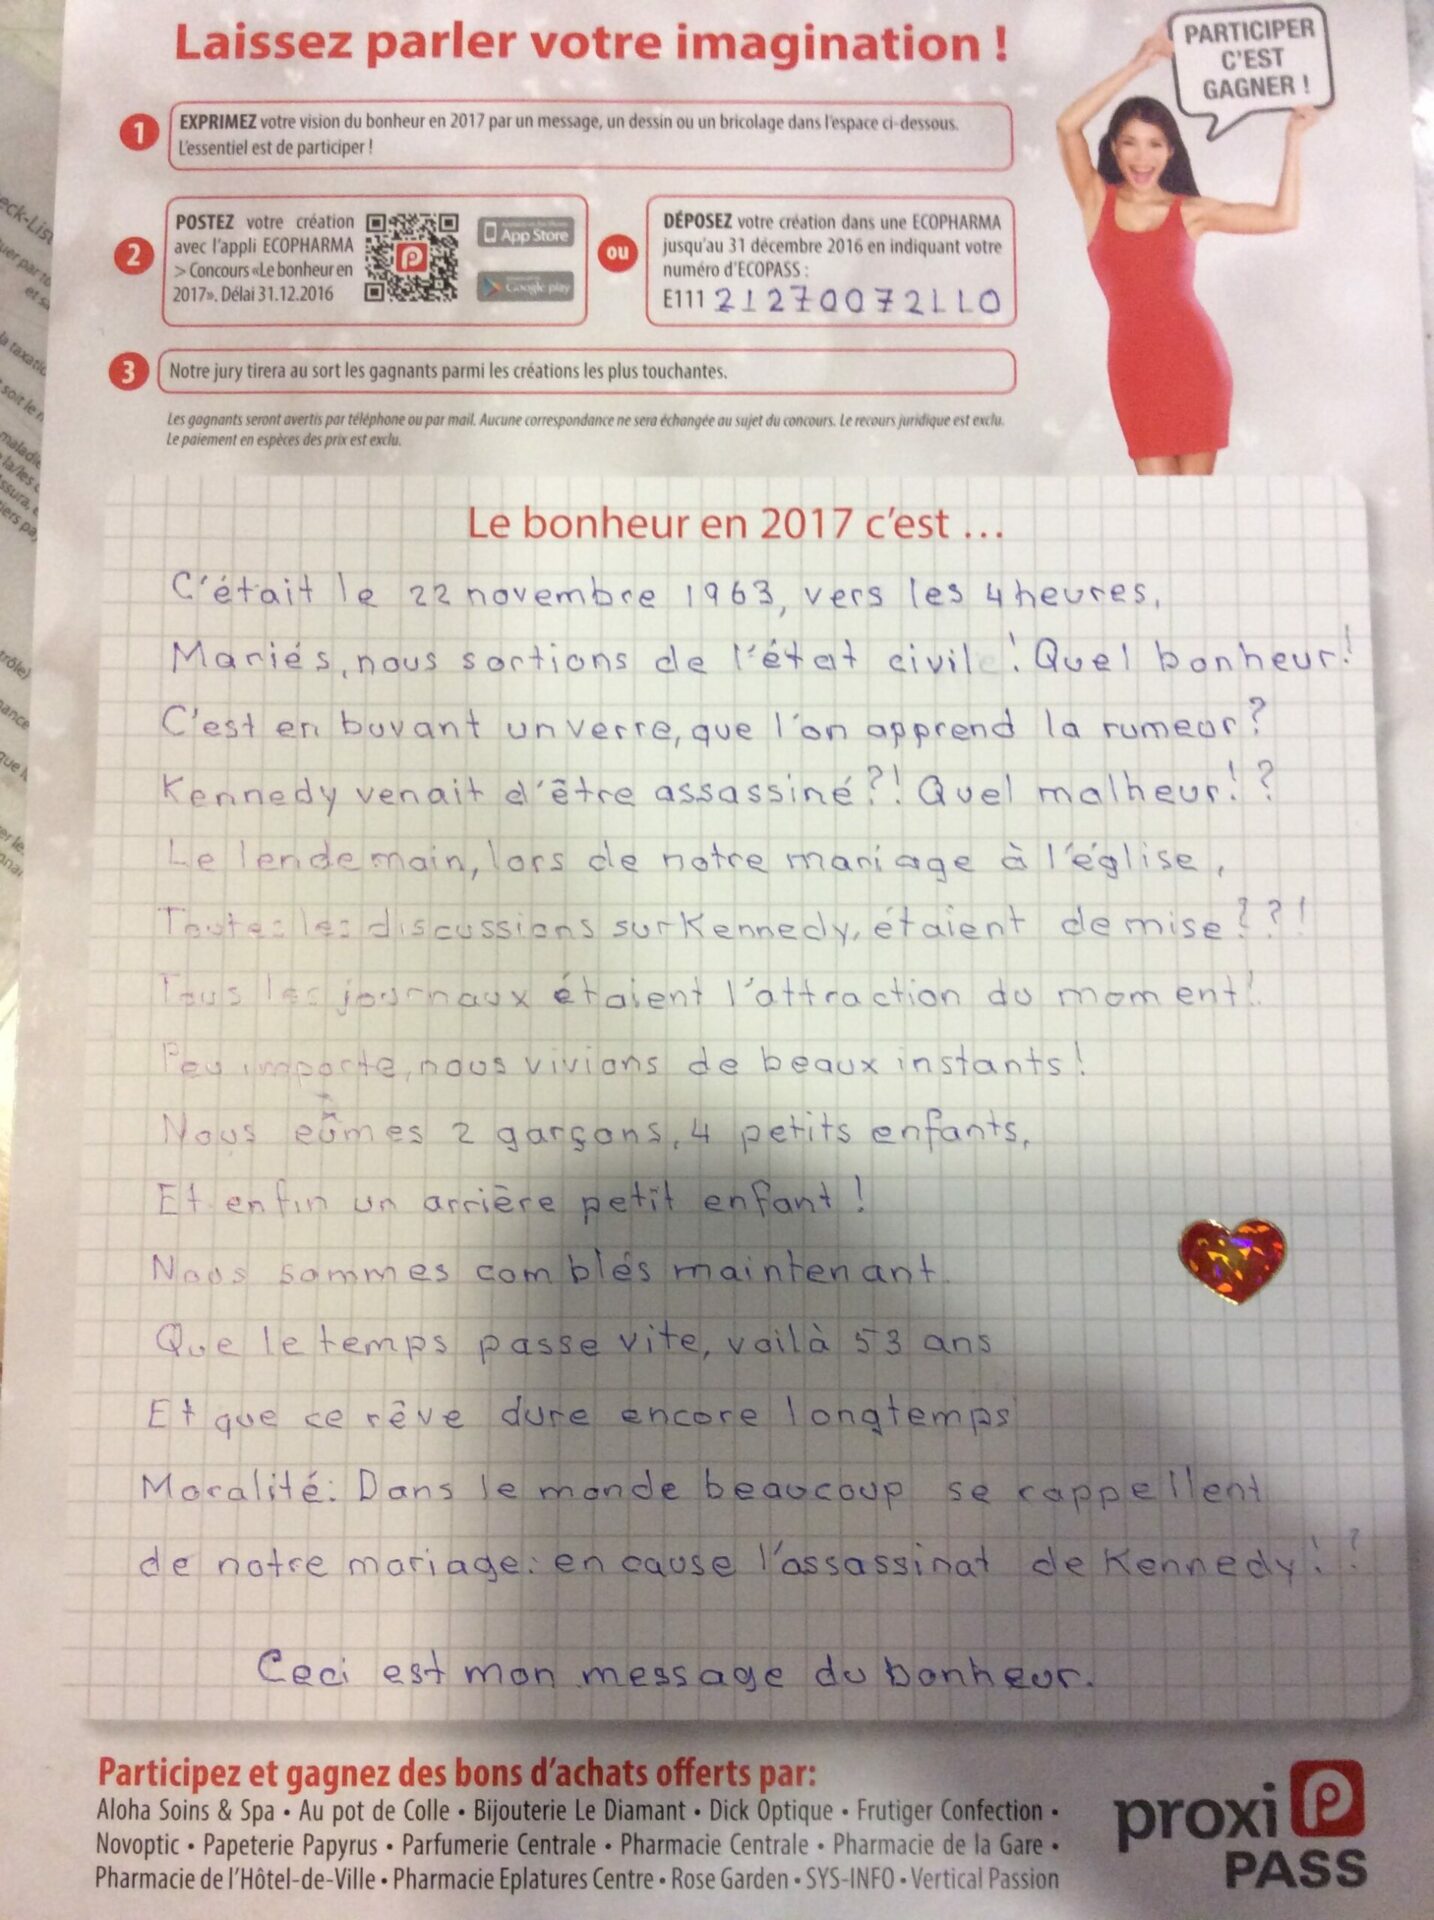 Laissez parler votre imagination !
PARTICIPER
C'EST
GAGNER !
1
EXPRIMEZ votre vision du bonheur en 2017 par un message, un dessin ou un bricolage dans l'espace ci-dessous.
L'essentiel est de participer !
2
POSTEZ votre création
avec l'appli ECOPHARMA
> Concours «Le bonheur en
2017». Délai 31.12.2016
App Store
Google play
ou
DÉPOSEZ votre création dans une ECOPHARMA
jusqu'au 31 décembre 2016 en indiquant votre
numéro d'ECOPASS :
E111 21270072110
3
Notre jury tirera au sort les gagnants parmi les créations les plus touchantes.
Les gagnants seront avertis par téléphone ou par mail. Aucune correspondance ne sera échangée au sujet du concours. Le recours juridique est exclu.
Le paiement en espèces des prix est exclu.
Le bonheur en 2017 c'est ...
C'était le 22 novembre 1963, vers les 4 heures,
Mariés, nous sortions de l'état civil ! Quel bonheur !
C'est en buvant un verre, que l'on apprend la rumeur ?
Kennedy venait d'être assassiné ?! Quel malheur ! ?
Le lendemain, lors de notre mariage à l'église,
Toutes les discussions sur Kennedy, étaient de mise ? ? !
Tous les journaux étaient l'attraction du moment !
Peu importe, nous vivions de beaux instants !
Nous eûmes 2 garçons, 4 petits enfants,
Et enfin un arrière petit enfant !
Nous sommes comblés maintenant
Que le temps passe vite, voilà 53 ans
Et que ce rêve dure encore longtemps
Moralité: Dans le monde beaucoup se rappellent
de notre mariage: en cause l'assassinat de Kennedy ! ?
Ceci est mon message du bonheur.
Participez et gagnez des bons d'achats offerts par:
Aloha Soins & Spa • Au pot de Colle • Bijouterie Le Diamant • Dick Optique • Frutiger Confection •
Novoptic • Papeterie Papyrus • Parfumerie Centrale • Pharmacie Centrale • Pharmacie de la Gare •
Pharmacie de l'Hôtel-de-Ville • Pharmacie Eplatures Centre • Rose Garden • SYS-INFO • Vertical Passion
proxi P
PASS